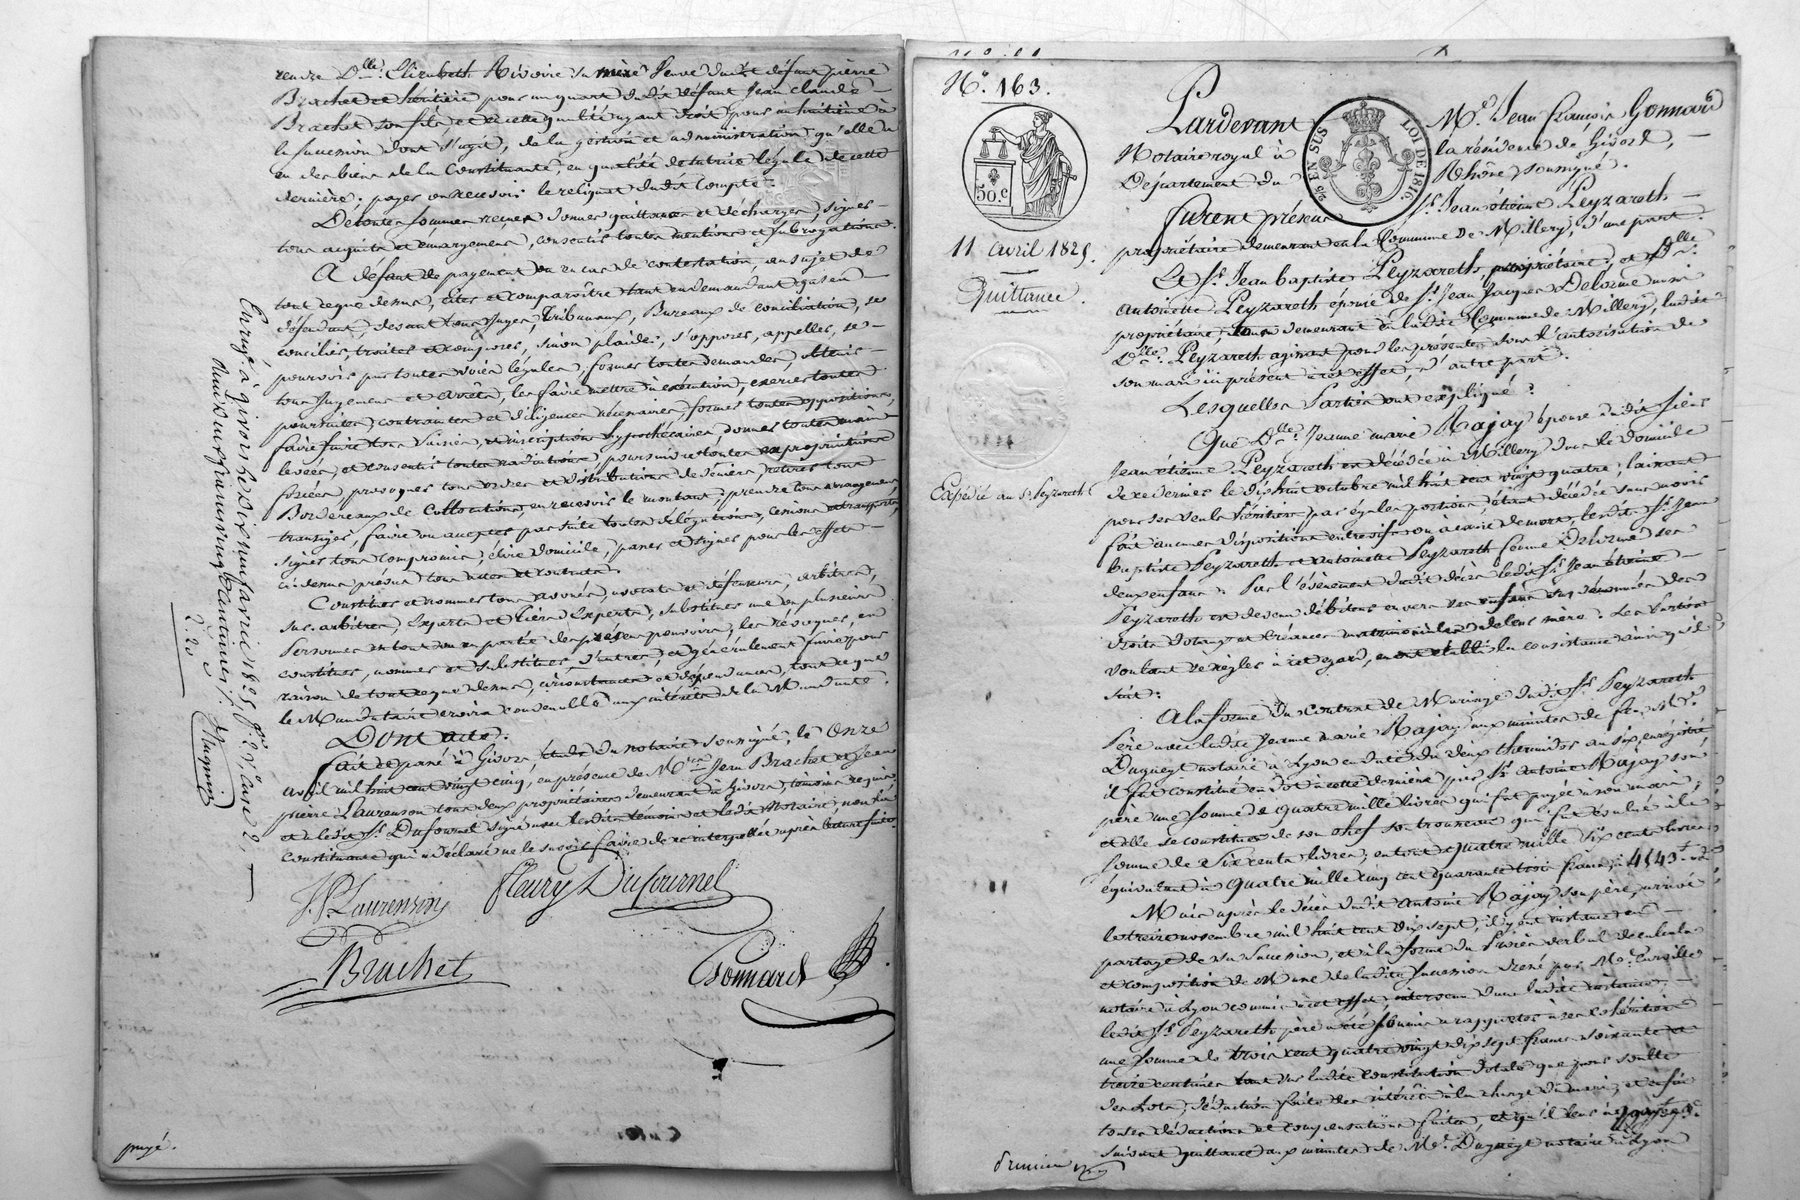 rendre Dlle. Elizabeth Rivoire sa mère Veuve dudit défunt pierre
Brachet et héritière pour un quart dudit défunt Jean Claude
Brachet son fils, et en cette qualité ayant droit pour un huitième à
la succession dont s'agit, de la gestion et administration qu'elle a
eu des biens de la Constituante, en qualité de tutrice légale de cette
dernière; payer ou recevoir le reliquat dudit compte.
De toutes sommes reçues donner quittances et décharges, signer
tous acquits et émargemens, consentir toutes mentions et subrogations.
A défaut de payement ou en cas de contestation, au sujet de
tout ce que dessus, citer et comparoître tant en demandant qu'en
défendant, devant tous Juges, Tribunaux, Bureaux de conciliation, se
concilier, traiter et composer, sinon plaider, s'opposer, appeller, se
pourvoir par toutes voies légales; former toutes demandes, obtenir
tous Jugemens et arrêts, les faire mettre à exécution, exercer toutes
poursuites, contraintes et diligences nécessaires, former toutes oppositions,
faire faire tous saisies, et inscriptions hypothécaires, donner toutes main
levées, et consentir toutes radiations, poursuivre toutes expropriations
forcées, provoquer tous ordres et distributions de deniers, retirer tous
Bordereaux de Collocations, en recevoir le montant; prendre tous arrangemens,
transiger, faire ou accepter par suite toutes délégations, cessions et transports,
signer tous compromis, élire domicile, passer et signer pour les effets
ci dessus prévus tous actes et contrats.
Constituer et nommer tous avoués, avocats et défenseurs, arbitres,
sur-arbitres, Experts et tiers Experts, substituer une ou plusieurs
Personnes en tout ou en partie des présens pouvoirs, les révoquer, en
constituer, nommer et substituer, d'autres, et généralement faire pour
raison de tout ce que dessus, circonstances et dépendances, tout ce que
le Mandataire croira convenable aux intérêts de la Mandante.
Dont acte:
fait et passé à Givors, étude du notaire soussigné, le Onze
avril mil huit cent vingt cinq, en présence de Mrs. Jean Brachet et Jean
pierre Laurenson tous deux propriétaires demeurant à Givors, témoins requis,
et a ledit Sr. Dufournel signé avec lesdits témoins et ledit Notaire, non la
Constituante qui a déclaré ne le savoir faire de ce interpellée après lecture faite.
J. P. Laurenson
fleury Dufournel
Brachet
Gonnard
Enregé. à givors le dix neuf avril 1825 fo. 2 Vo. Case 2,
payé.
No. 163.
50 c
11 avril 1825.
Quittance.
Expédié au Sr Peyzareth
Pardevant Me. Jean françois Gonnard
Notaire royal à la résidence de Givors,
Département du Rhône, soussigné.
EN SUS
LOI DE 1816
furent présens Sr. Jean étienne Peyzareth
propriétaire demeurant en la Commune de Millery, d'une part.
Et Sr. Jean baptiste Peyzareth, propriétaire, et Dlle.
Antoinette Peyzareth épouse de Sr. Jean Jacques Delorme aussi
propriétaire, tous demeurant en ladite Commune de Millery, ladite
Dlle. Peyzareth agissant pour les présentes sous l'autorisation de
son mari ici présent à cet effet, d'autre part.
Lesquelles Parties ont expliqué:
Que Dlle. Jeanne marie Rajay épouse dudit sieur
Jean étienne Peyzareth est décédée à Millery dans le domicile
de ce dernier le dix huit octobre mil huit cent vingt quatre, laissant
pour ses seuls héritiers par égales portions, étant décédée sans avoir
fait aucunes dispositions entrevifs ou à cause de mort, lesdits Sr. Jean
baptiste Peyzareth et antoinette Peyzareth femme Delorme ses
deux enfans. Par l'évènement dudit décès ledit Sr. Jean étienne
Peyzareth est devenu débiteur envers ses enfans sus dénommés des
droits dotaux et créances matrimoniales de leur mère. Les Parties
voulant se régler à cet égard, en ont établi la consistance ainsi qu'il
suit:
A la forme du Contrat de Mariage dudit Sr. Peyzareth
Père avec ladite Jeanne marie Rajay aux minutes de feu Me.
Dugueyt notaire à Lyon en date du deux thermidor an six, enregistré
il fut constitué en dot à cette dernière par Sr. Antoine Rajay son
père une somme de quatre mille livres qui fut payée à son mari;
et elle se constitua de son chef son trousseau qui fut évalué à la
somme de six cents livres, en tout quatre mille six cent livres
équivalant à quatre mille cinq cent quarante trois francs, 4543 f.
Mais après le décès dudit Antoine Rajay son père, arrivé
le treize novembre mil huit cent dix sept, il y eut instance en
partage de sa Succession, et à la forme du Procès verbal de calculs
et composition de Masse de ladite Succession dressé par Me. Curville
notaire à Lyon commis à cet effet, intervenu dans ladite instance,
ledit Sr. Peyzareth père a été soumis à rapporter à ses cohéritiers
une somme de trois cent quatre vingt dix sept francs soixante et
treize centimes tant sur ladite constitution dotale que pour soulte
des lots, déduction faite des intérêts à la charge du mari; et à fin
toutes déductions et compensations faites,
suivant quittance aux minutes de Me. Dugueyt notaire à Lyon